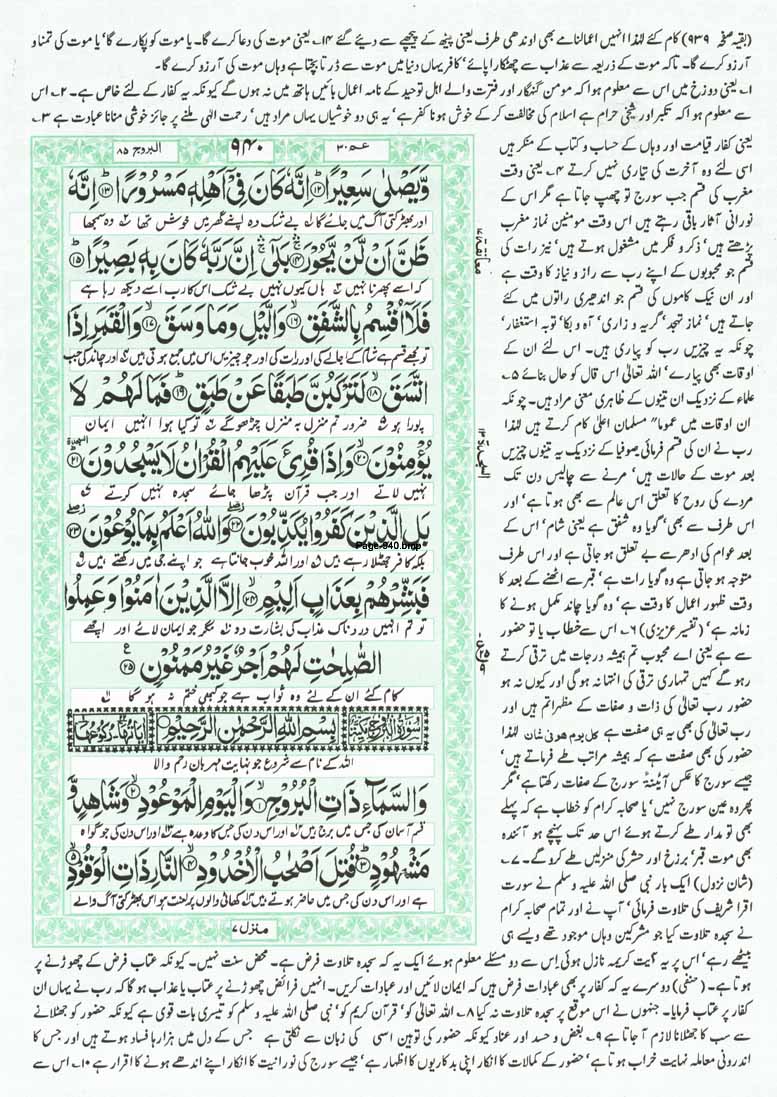 (بقیہ صفحہ ۹۳۹) کام کئے لہٰذا انہیں اعمالنامے بھی اوندھی طرف یعنی پیٹھ کے پیچھے سے دیئے گئے ۱۴۔ یعنی موت کی دعا کرے گا۔ یا موت کو پکارے گا' یا موت کی تمنا و
آرزو کرے گا۔ تاکہ موت کے ذریعہ سے عذاب سے چھٹکارا پائے' کافر یہاں دنیا میں موت سے ڈرتا بچتا ہے وہاں موت کی آرزو کرے گا۔
۱۔ یعنی دوزخ میں اس سے معلوم ہوا کہ مومن گنہگار اور فترت والے اہل توحید کے نامہ اعمال بائیں ہاتھ میں نہ ہوں گے کیونکہ یہ کفار کے لئے خاص ہے۔ ۲۔ اس
سے معلوم ہوا کہ تکبر اور شیخی حرام ہے اسلام کی مخالفت کر کے خوش ہونا کفر ہے' یہ ہی دو خوشیاں یہاں مراد ہیں' رحمت الٰہی ملنے پر جائز خوشی منانا عبادت ہے ۳۔
یعنی کفار قیامت اور وہاں کے حساب و کتاب کے منکر ہیں
اسی لئے وہ آخرت کی تیاری نہیں کرتے ۴۔ یعنی وقت
مغرب کی قسم جب سورج تو چھپ جاتا ہے مگر اس کے
نورانی آثار باقی رہتے ہیں اس وقت مومنین نماز مغرب
پڑھتے ہیں' ذکر و فکر میں مشغول ہوتے ہیں' نیز رات کی
قسم جو محبوبوں کے اپنے رب سے راز و نیاز کا وقت ہے
اور ان نیک کاموں کی قسم جو اندھیری راتوں میں کئے
جاتے ہیں' نماز تہجد' گریہ و زاری' آہ و بکا' توبہ استغفار'
چونکہ یہ چیزیں رب کو پیاری ہیں۔ اس لئے ان کے
اوقات بھی پیارے' اللہ تعالٰی اس قال کو حال بنائے ۵۔
علماء کے نزدیک ان تینوں کے ظاہری معنی مراد ہیں۔ چونکہ
ان اوقات میں عموماً" مسلمان اعلٰی کام کرتے ہیں لہٰذا
رب نے ان کی قسم فرمائی صوفیا کے نزدیک یہ تینوں چیزیں
بعد موت کے حالات ہیں' مرنے سے چالیس دن تک
مردے کی روح کا تعلق اس عالم سے بھی ہوتا ہے' اور
اس طرف سے بھی' گویا وہ شفق ہے یعنی شام' اس کے
بعد عوام کی ادھر سے بے تعلق ہو جاتی ہے اور اس طرف
متوجہ ہو جاتی ہے وہ گویا رات ہے' قبر سے اٹھنے کے بعد کا
وقت ظہور اعمال کا وقت ہے' وہ گویا چاند مکمل ہونے کا
زمانہ ہے' (تفسیر عزیزی) ۶۔ اس سے خطاب یا تو حضور
سے ہے یعنی اے محبوب تم ہمیشہ درجات میں ترقی کرتے
رہو گے کہیں تمہاری ترقی کی انتہا نہ ہو گی اور کیوں نہ ہو
حضور رب تعالٰی کی ذات و صفات کے مظہر اتم ہیں اور
رب تعالٰی کی بھی یہ ہی صفت ہے کل یوم ھو فی شان لہٰذا
حضور کی بھی صفت ہے کہ ہمیشہ مراتب طے فرماتے ہیں'
جیسے سورج کا عکس آئینہ سورج کے صفات رکھتا ہے' مگر
پھر وہ عین سورج نہیں' یا صحابہ کرام کو خطاب ہے کہ پہلے
بھی تو مدارج طے کرتے ہوئے اس حد تک پہنچے ہو آئندہ
بھی موت قبر' برزخ اور حشر کی منزلیں طے کرو گے۔ ۷۔
(شان نزول) ایک بار نبی صلی اللہ علیہ وسلم نے سورت
اقرا شریف کی تلاوت فرمائی' آپ نے اور تمام صحابہ کرام
نے سجدہ تلاوت کیا جو مشرکین وہاں موجود تھے ویسے ہی
عمّ ۳۰
۹۴۰
البروج ۸۵
وَّيَصْلٰى سَعِيْرًا ۱۲ اِنَّهٗ كَانَ فِيْٓ اَهْلِهٖ مَسْرُوْرًا ۱۳ اِنَّهٗ
اور بھڑکتی آگ میں جائے گا بے شک وہ اپنے گھر میں خوش تھا وہ سمجھا
ظَنَّ اَنْ لَّنْ يَّحُوْرَ ۱۴ بَلٰٓى اِنَّ رَبَّهٗ كَانَ بِهٖ بَصِيْرًا ۱۵
کہ اسے پھرنا نہیں ہاں کیوں نہیں بے شک اس کا رب اسے دیکھ رہا ہے
فَلَآ اُقْسِمُ بِالشَّفَقِ ۱۶ وَالَّيْلِ وَمَا وَسَقَ ۱۷ وَالْقَمَرِ اِذَا
تو مجھے قسم ہے شام کے اجالے کی اور رات کی اور جو چیزیں اس میں جمع ہوتی ہیں اور چاند کی جب
اتَّسَقَ ۱۸ لَتَرْكَبُنَّ طَبَقًا عَنْ طَبَقٍ ۱۹ فَمَا لَهُمْ لَا
پورا ہو ضرور تم منزل بہ منزل چڑھو گے تو کیا ہوا انہیں ایمان
يُؤْمِنُوْنَ ۲۰ وَاِذَا قُرِئَ عَلَيْهِمُ الْقُرْاٰنُ لَا يَسْجُدُوْنَ ۲۱
نہیں لاتے اور جب قرآن پڑھا جائے سجدہ نہیں کرتے
بَلِ الَّذِيْنَ كَفَرُوْا يُكَذِّبُوْنَ ۲۲ وَاللّٰهُ اَعْلَمُ بِمَا يُوْعُوْنَ ۲۳
Page-940.bmp
بلکہ کافر جھٹلا رہے ہیں اور اللہ خوب جانتا ہے جو اپنے جی میں رکھتے ہیں
فَبَشِّرْهُمْ بِعَذَابٍ اَلِيْمٍ ۲۴ اِلَّا الَّذِيْنَ اٰمَنُوْا وَعَمِلُوا
تو تم انہیں دردناک عذاب کی بشارت دو مگر جو ایمان لائے اور اچھے
الصّٰلِحٰتِ لَهُمْ اَجْرٌ غَيْرُ مَمْنُوْنٍ ۲۵
کام کئے ان کے لئے وہ ثواب ہے جو کبھی ختم نہ ہو گا
سُوْرَةُ الْبُرُوْجِ مَكِّيَّةٌ بِسْمِ اللّٰهِ الرَّحْمٰنِ الرَّحِيْمِ
اللہ کے نام سے شروع جو نہایت مہربان رحم والا
وَالسَّمَآءِ ذَاتِ الْبُرُوْجِ ۱ وَالْيَوْمِ الْمَوْعُوْدِ ۲ وَشَاهِدٍ وَّ
قسم آسمان کی جس میں برج ہیں اور اس دن کی جس کا وعدہ ہے اور اس دن کی جو گواہ
مَشْهُوْدٍ ۳ قُتِلَ اَصْحٰبُ الْاُخْدُوْدِ ۴ النَّارِ ذَاتِ الْوَقُوْدِ ۵
ہے اور اس دن کی جس میں حاضر ہوتے ہیں کھائی والوں پر لعنت ہو اس بھڑکتی آگ والے
منزل ۷
بیٹھے رہے' اس پر یہ آیت کریمہ نازل ہوئی اس سے دو مسئلے معلوم ہوئے ایک یہ کہ سجدہ تلاوت فرض ہے۔ محض سنت نہیں۔ کیونکہ عتاب فرض کے چھوڑنے پر
ہوتا ہے۔ (حنفی) دوسرے یہ کہ کفار پر بھی عبادات فرض ہیں کہ ایمان لائیں اور عبادات کریں۔ انہیں فرائض چھوڑنے پر عتاب یا عذاب ہو گا کہ رب نے یہاں ان
کفار پر عتاب فرمایا۔ جنہوں نے اس موقع پر سجدہ تلاوت نہ کیا ۸۔ اللہ تعالٰی کو' قرآن کریم کو' نبی صلی اللہ علیہ وسلم کو تیسری بات قوی ہے کیونکہ حضور کو جھٹلانے
سے سب کا جھٹلانا لازم آ جاتا ہے ۹۔ بغض و حسد اور عناد کیونکہ حضور کی توہین اسی کی زبان سے نکلتی ہے جس کے دل میں ہزارہا فساد ہوتے ہیں اور جس کا
اندرونی معاملہ نہایت خراب ہوتا ہے' حضور کے کمالات کا انکار اپنی بدکاریوں کا اظہار ہے' جیسے سورج کی نورانیت کا انکار اپنے اندھے ہونے کا اقرار ہے ۱۰۔ اس سے